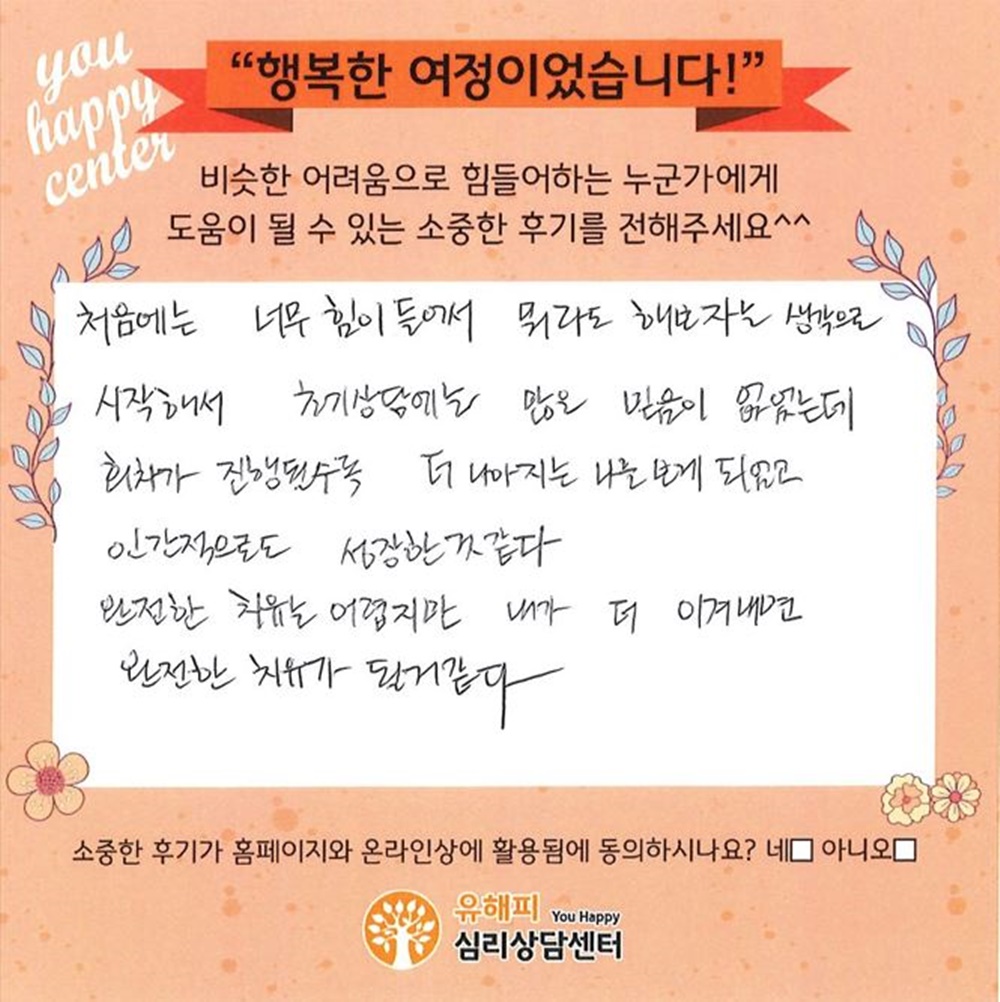 you
happy
center
“행복한 여정이었습니다!”
비슷한 어려움으로 힘들어하는 누군가에게
도움이 될 수 있는 소중한 후기를 전해주세요^^
처음에는 너무 힘이 들어서 뭐라도 해보자는 생각으로
시작해서 초기상담에는 많은 믿음이 없었는데
회차가 진행될수록 더 나아지는 나를 보게 되었고
인간적으로도 성장한것 같다
완전한 치유는 어렵지만 내가 더 이겨내면
완전한 치유가 될거같다
소중한 후기가 홈페이지와 온라인상에 활용됨에 동의하시나요? 네□ 아니오□
유해피 You Happy
심리상담센터